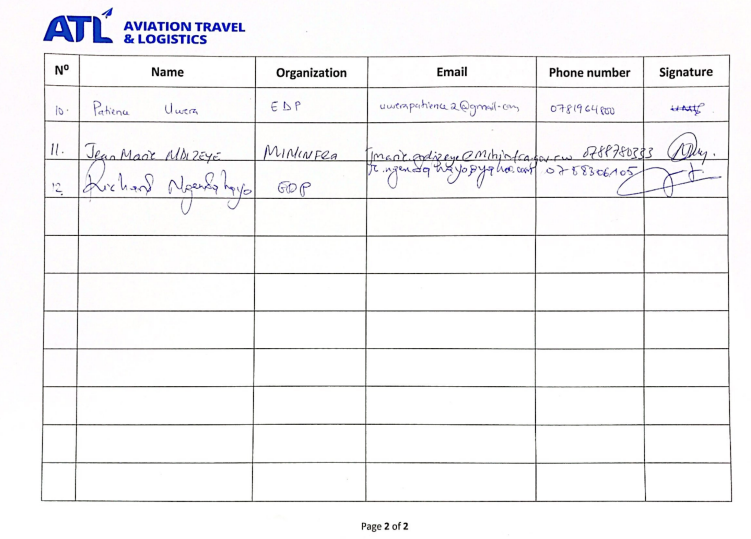 ATL AVIATION TRAVEL
& LOGISTICS
Nº Name Organization Email Phone number Signature
10. Patience Uwera EDP uwerapatience2@gmail.com 0781964800
11. Jean Marie NDIZEYE MININFRA jmarie.ndizeye@mininfra.gov.rw 0788780333
12. Richard Ngendahayo EDP r.ngendahayo@yahoo.com 0788306105
Page 2 of 2